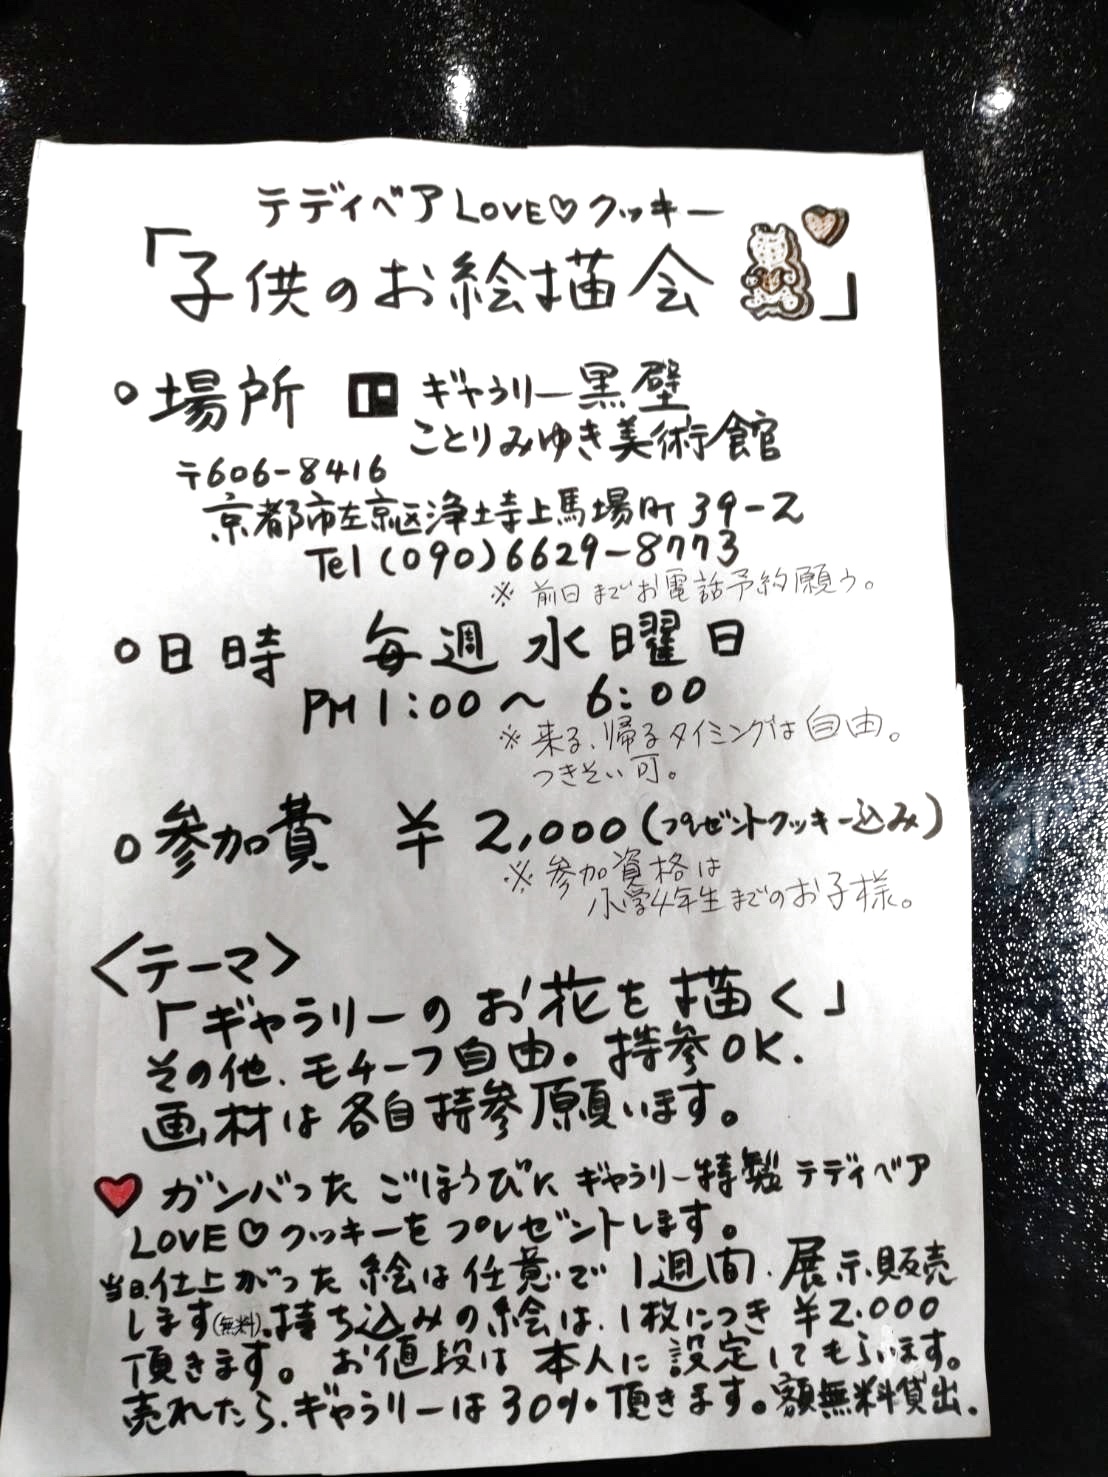 テディベアLOVE♡クッキー
「子供のお絵描会」
○場所 ギャラリー黒壁
ことりみゆき美術館
〒606-8416
京都市左京区浄土寺上馬場町39-2
Tel(090)6629-8773
※前日までお電話予約願う。
○日時 毎週水曜日
PM1:00〜6:00
※来る、帰るタイミングは自由。
つきそい可。
○参加費 ¥2,000(プレゼントクッキー込み)
※参加資格は
小学4年生までのお子様。
<テーマ>
「ギャラリーのお花を描く」
その他、モチーフ自由。持参OK.
画材は各自持参願います。
♥ガンバったごほうびにギャラリー特製テディベア
LOVE♡クッキーをプレゼントします。
当日、仕上がった絵は任意で1週間、展示販売
します(無料)、持ち込みの絵は、1枚につき¥2.000
頂きます。お値段は本人に設定してもらいます。
売れたら、ギャラリーは30%頂きます。額無料貸出.